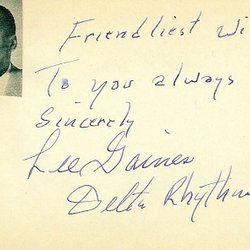 Friendliest Wi
To you always
Sincerely
Lee Gaines
Delta Rhythm